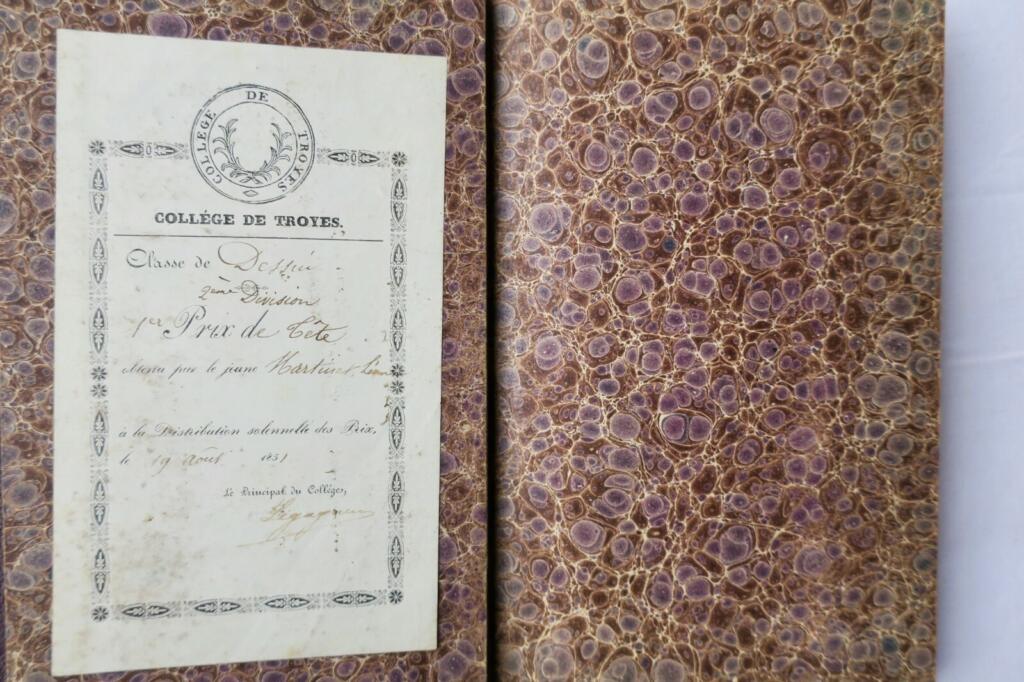 COLLEGE DE TROYES
COLLÉGE DE TROYES.
Classe de Dessin
2ème Division
1er Prix de Tête
obtenu par le jeune Martinet
à la Distribution solennelle des Prix,
le 19 Août 1831
Le Principal du Collége,